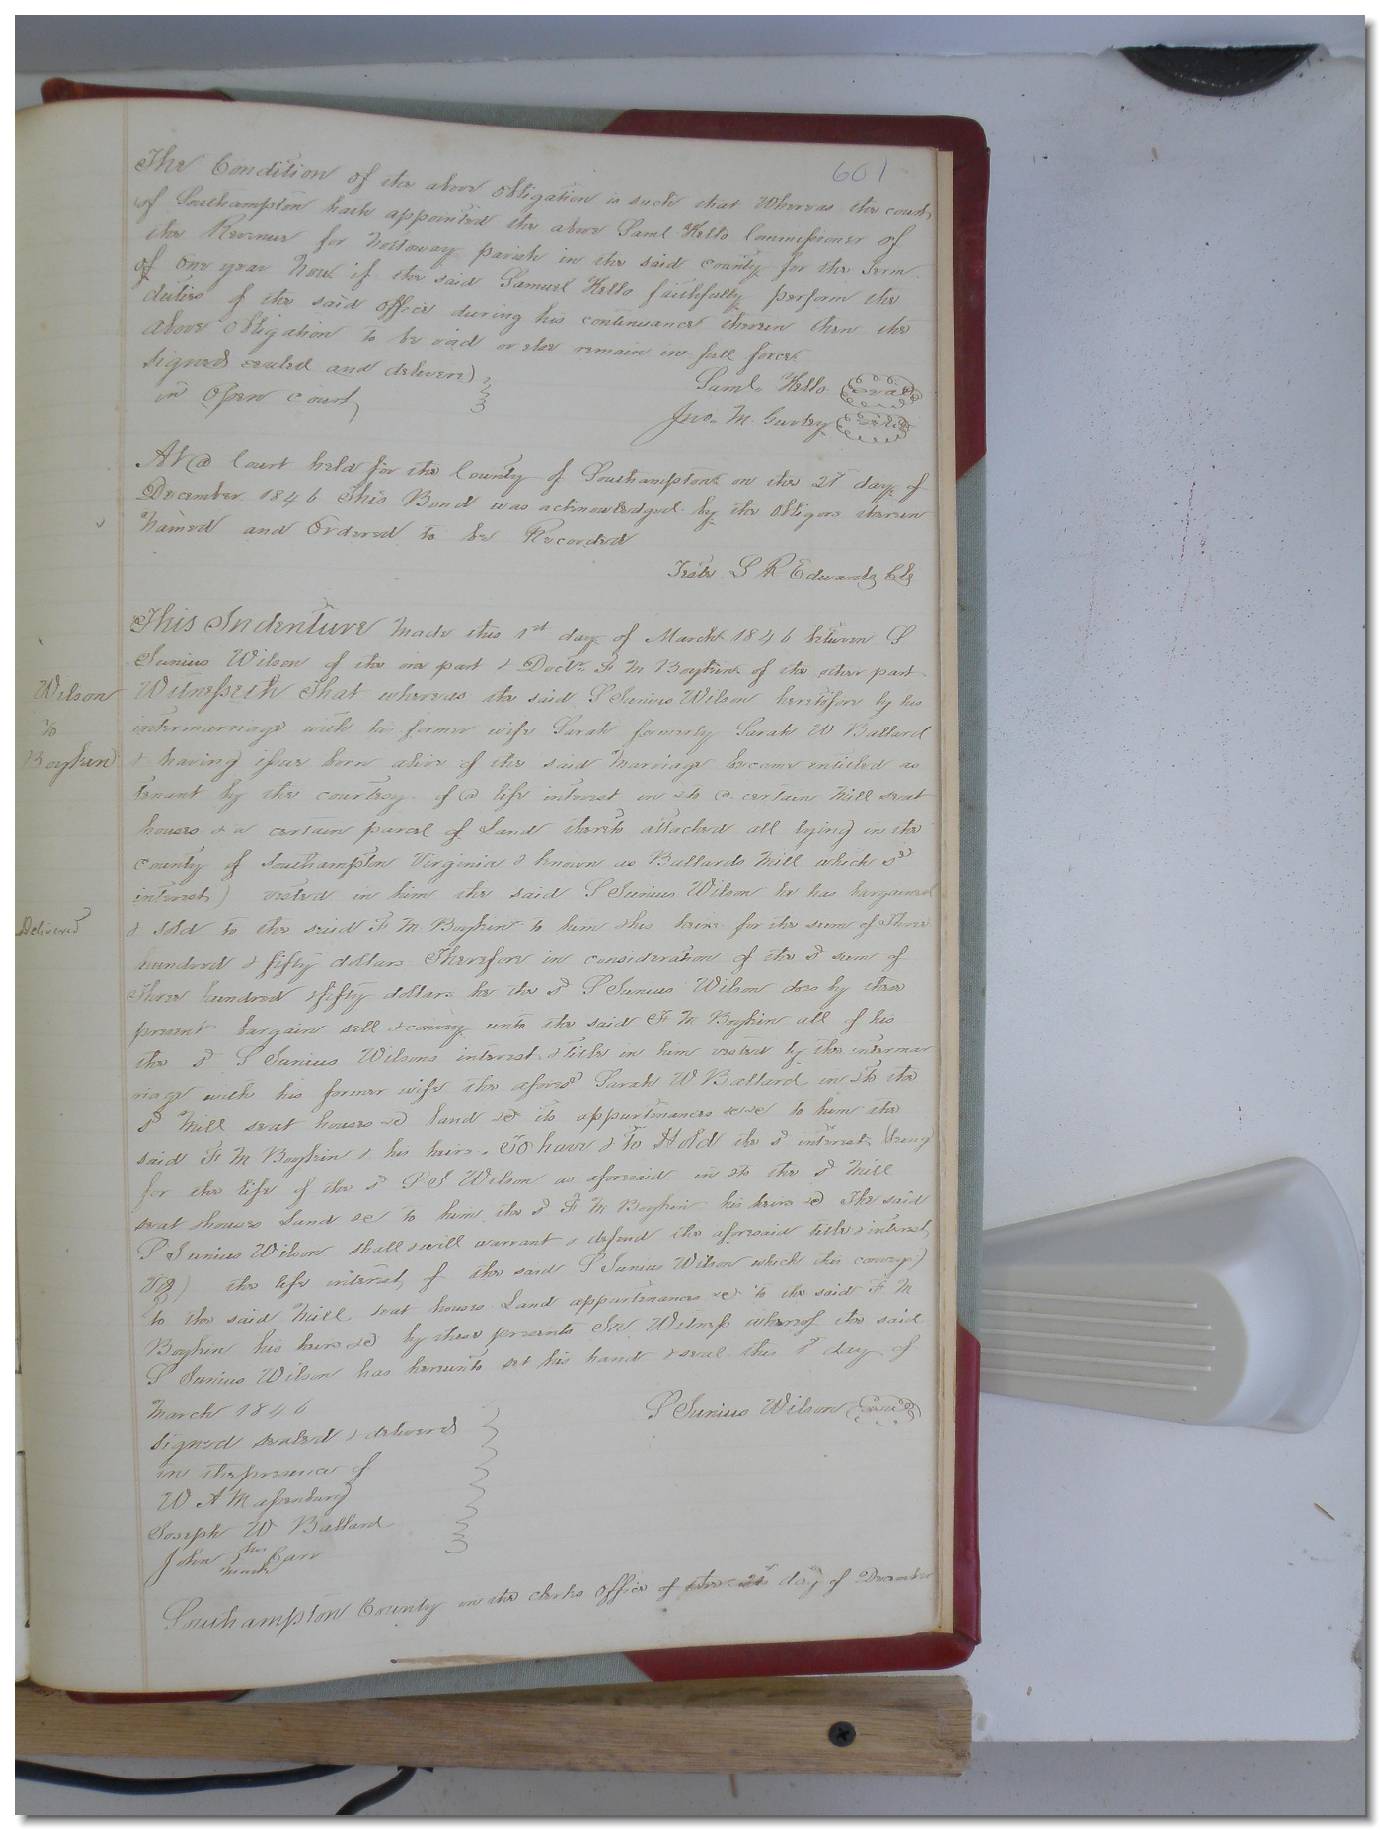 601
The Condition of the above obligation is such that Whereas the court
of Southampton hath appointed the above Saml Kello Commissioner of
the Revenue for Nottoway parish in the said county for the term
of one year Now if the said Samuel Kello faithfully perform the
duties of the said office during his continuance therein then the
above obligation to be void or else remain in full force
Signed sealed and delivered
in Open court
Saml. Kello Seal
Jno. M. Gurley Seal
At a Court held for the County of Southampton on the 21 day of
December 1846 This Bond was acknowledged by the obligors therein
Named and Ordered to be Recorded
Teste L R Edwards Clk
This Indenture Made this 1st day of March 1846 between S
Junius Wilson of the one part & Doctr. F M Boykin of the other part
Wilson
to
Boykin
Witnesseth That whereas the said S Junius Wilson heretofore by his
intermarriage with his former wife Sarah formerly Sarah W Ballard
& having issue born alive of the said Marriage became entitled as
tenant by the courtesy of a life interest in & to a certain Mill seat
houses & a certain parcel of Land thereto attached all lying in the
county of Southampton Virginia & known as Ballards Mill which sd
interest) vested in him the said S Junius Wilson he has bargained
Delivered
& sold to the said F M Boykin to him & his heirs for the sum of Three
hundred & fifty dollars Therefore in consideration of the sd sum of
Three hundred & fifty dollars he the sd S Junius Wilson does by these
present bargain sell & convey unto the said F M Boykin all of his
the sd S Junius Wilsons interest & title in him vested by the intermar
riage with his former wife the aforesd Sarah W Ballard in & to the
sd Mill seat houses &c land &c its appurtenances &c &c to him the
said F M Boykin & his heirs. To have & to Hold the sd interest (being
for the life of the sd S J Wilson as aforesaid in & to the sd Mill
seat houses Land &c to him the sd F M Boykin his heirs &c The said
S Junius Wilson shall & will warrant & defend the aforesaid title & interest
Viz) the life interest of the said S Junius Wilson which this conveys)
to the said Mill seat houses Land appurtenances &c to the said F M
Boykin his heirs &c by these presents In Witness whereof the said
S Junius Wilson has hereunto set his hand & seal this 1st day of
March 1846
S Junius Wilson Seal
Signed sealed & delivered
in the presence of
W A Massenburg
Joseph W Ballard
John his mark Carr
Southampton County in the clerks Office of the 21st day of December